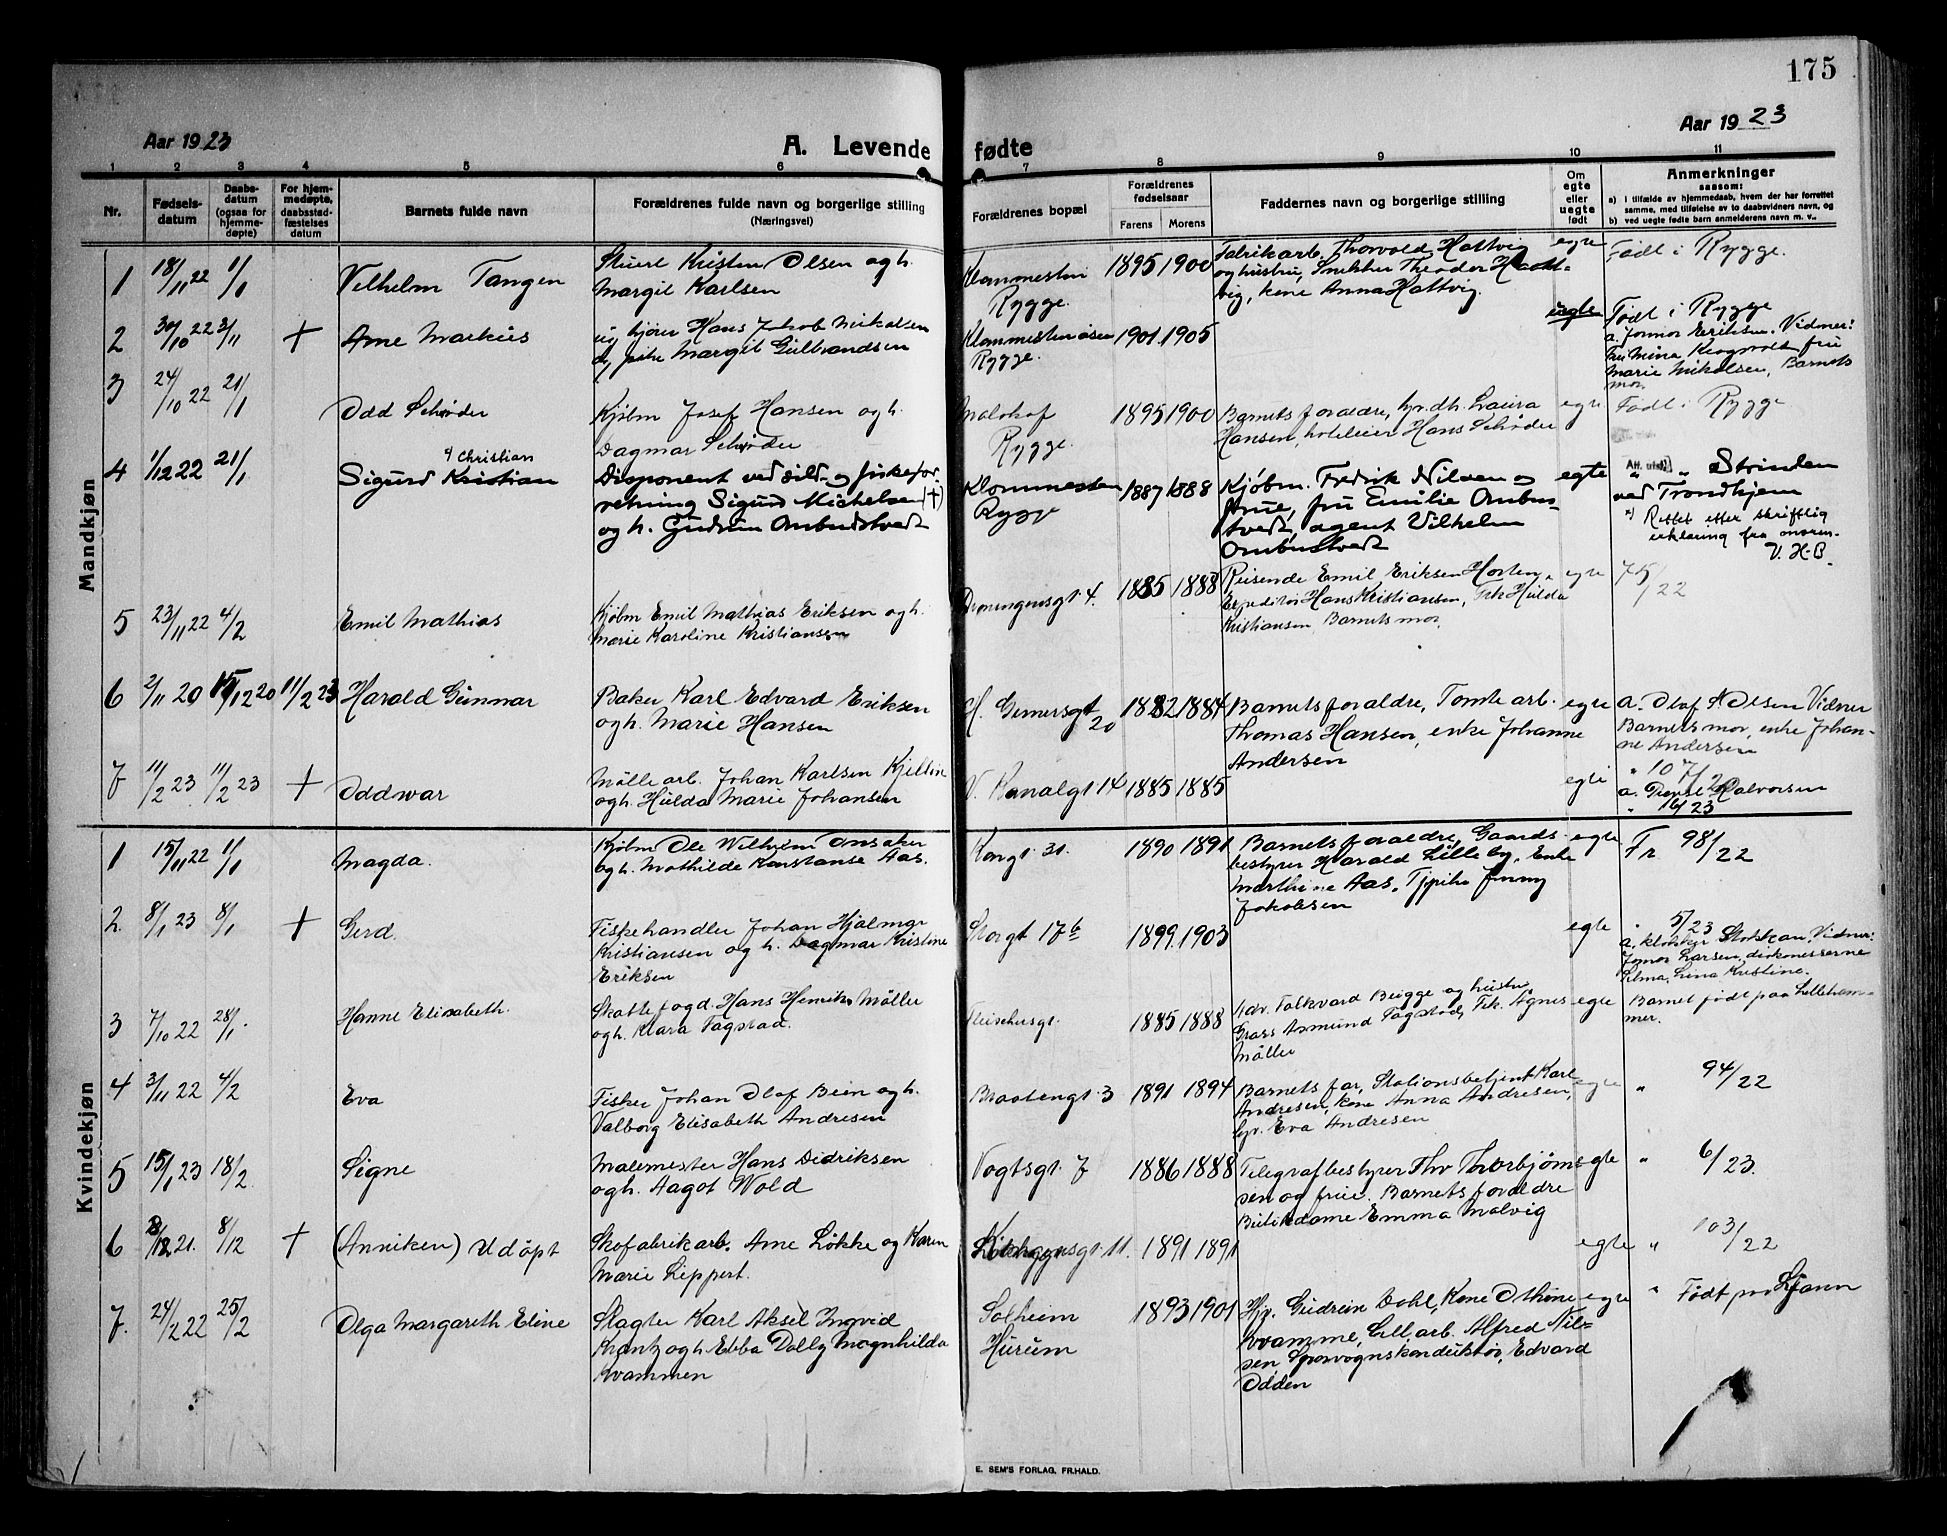 175
Aar 1923
A. Levende fødte
Aar 1923
1 2 3 4 5 6 7 8 9 10 11
Nr.
Fødsels-
datum
Daabs-
datum
(ogsaa for
hjemme-
døpte)
For hjem-
medøpte,
daabsstad-
fæstelses
datum
Barnets fulde navn
Forældrenes fulde navn og borgerlige stilling
(Næringsvei)
Forældrenes bopæl
Forældrenes
fødselsaar
Farens Morens
Faddernes navn og borgerlige stilling
Om
egte
eller
uegte
født
Anmerkninger
saasom:
a) i tilfælde av hjemmedaab, hvem der har forrettet
samme, med tilføielse av to daabsvidners navn, og
b) ved uegte fødte barn anmelderens navn m. v..
Mandkjøn
1 18/11 22 1/1 Vilhelm Tangen
Stuert Kristen Olsen og h.
Margit Karlsen
Klommesten
Rygge.
1895 1900
Fabrikarb. Thorvald Hattvig
og hustru, Snekker Theodor Hatt-
vig, kone Anna Hattvig.
egte
Født i Rygge.
2 30/10 22 3/11 + Arne Markus
ug. kjører Hans Jakob Mikalsen
og pike Margit Gulbrandsen
Klommestenøsen
Rygge.
1901 1905
uegte
Født i Rygge
a. Jormor Eriksen. Vidner:
fru Mina fru
Marie Mikalsen, Barnets
mor.
3 24/10 22 21/1 Odd Schrøder
Kjøbm Josef Hansen og h.
Dagmar Schrøder
Malakof
Rygge.
1895 1900
Barnets foraldre, syr.dh. Laura
Hansen, hoteleier Hans Schrøder
egte
Født i Rygge
4 1/12 22 21/1 Sigurd Kristian
x) Christian
Disponent ved sild- og fiskefor-
retning Sigurd Michelsen (+)
og h. Gudrun Ombustvedt
Klommesten
Rygge
1887 1888
Kjøbm. Fredrik Nilsen og
frue, fru Emilie Ombu-
stvedt, agent Vilhelm
Ombustvedt
egte
Att. utst.
" " Strinden
ved Trondhjem
x) Rettet efter skriftlig
erklæring fra moren.
V. H-B.
5 23/11 22 4/2 Emil Mathias
Kjøbm Emil Mathias Eriksen og h.
Marie Karoline Kristiansen
Droningensgt. 4.
1885 1888
Reisende Emil Eriksen Horten,
Expeditør Hans Kristiansen, Frk Hulda
Kristiansen Barnets mor.
egte
75/22
6 2/11 20 15/12 20 11/2 23 Harald Gunnar
Baker Karl Edvard Eriksen
og h. Marie Hansen
H. Gernersgt
20
1882 1884
Barnets foraldre, Tomtearb.
Thomas Hansen, enke Johanne
Andersen
egte
a. Olaf A Olsen Vidner
Barnets mor, enke Johan-
ne Andersen
" 107/2
7 11/2 23 11/2 23 + Oddwar
Møllearb. Johan Karlsen Kjellin
og h. Hulda Marie Johansen
V. Kanalgt 14
1885 1885
egte
a. Halvorsen
" 16/23
Kvindekjøn
1 15/11 22 1/1 Magda.
Kjøbm Ole Wilhelm Onsaker
og h. Mathilde Konstanse Aas.
Kongt. 31.
1890 1891
Barnets foraldre, Gaards-
bestyrer Harald Lilleby, Enke
Marthine Aas, Tjpike Jenny
Jakobsen
egte
Fr 98/22
2. 8/1 23 8/1 + Gerd.
Fiskehandler Johan Hjalmar
Kristiansen og h. Dagmar Kristine
Eriksen
Storgt 17 b
1899. 1903
egte
" 5/23
a. klokker Vidner:
Jormor Larsen, diakonesserne
Selma, Lina Kristine.
3 7/10 22 28/1. Hanne Elisabeth.
Skattefogd. Hans Henrik Møller
og h. Klara Fagstad.
Fleischersgt.
1885 1888
Adv. Falkvard Brigge og hustru,
Grass. Asmund Fagstad, Frk. Agnes
Møller
egte
Barnet født paa Lilleham-
mer.
4 3/11 22 4/2 Eva
Fisker Johan Olaf Bein og h.
Valborg Elisabeth Andresen
Braatengt. 3
1891 1894
Barnets far, Stationsbetjent Karl
Andresen, Kone Anna Andresen,
Syr. Eva Andresen
egte
" 94/22
5 15/1 23 18/2. Signe
Malermester Hans Didriksen
og h. Aagot Wold
Vogtsgt. 7
1886 1888
Telegrafbestyrer Thv Thorbjørn-
sen og frue. Barnets foraldre
Butikdame Emma Malvig
egte
" 6/23.
6 8/12 21. 8/12 + (Anniken) Udöpt
Skofabrikarb. Arne Løkke og Karen
Marie Lippert.
11.
1891 1891
egte
" 103/22
7. 24/2 22 25/2 Olga Margareth Eline
Slagter Karl Aksel Ingvid
Krantz og h. Ebba Dally Magnhilda
Kvammen
Solheim
Hurum
1893 1901
Hp. Gudrun Dahl, Kone Othine
Kvamme, Cell.arb. Alfred Nil-
sen, Sporvognskonduktør, Edvard
Odden
egte
" Født paa Ljann
E. SEM'S FORLAG, FR.HALD.